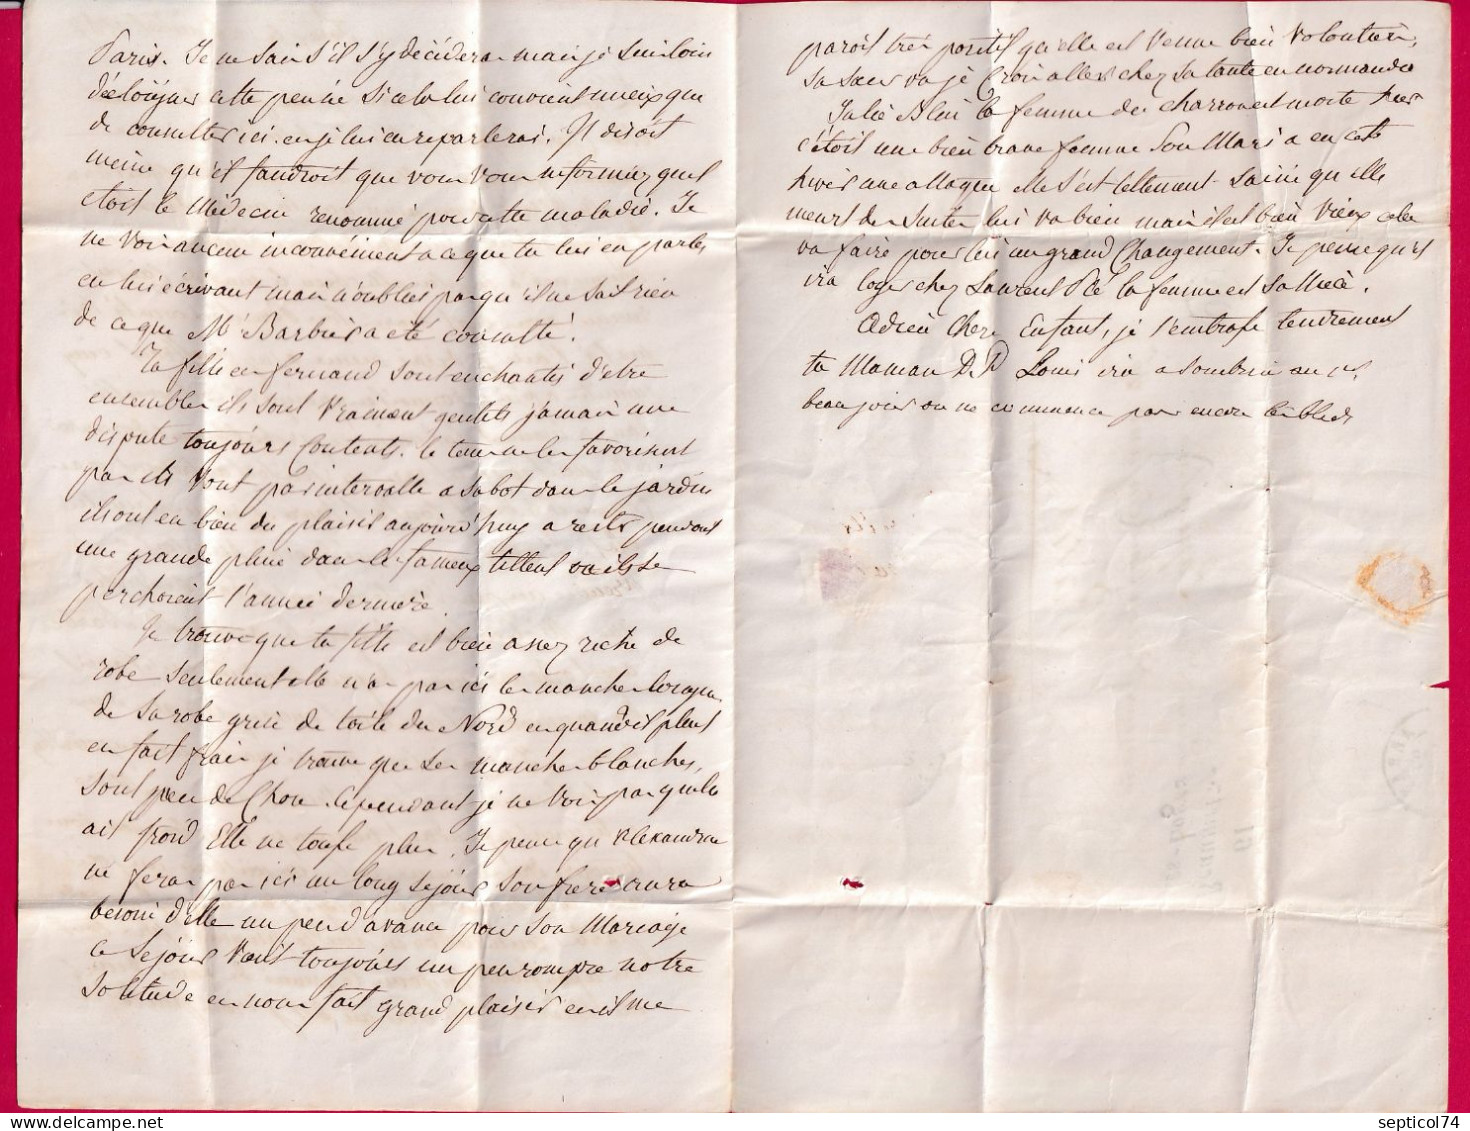 Paris. Je ne sais s'il s'y décidera mais je suis loin
d'éloigner cette pensée si cela lui convient mieux que
de consulter ici. je lui en reparlerai. Il disoit
même qu'il faudroit que vous vous informiez quel
étoit le Médecin renommé pour cette maladie. Je
ne vois aucun inconvénient a ce que tu lui en parles
en lui écrivant mais n'oublies pas qu'il ne sait rien
de ce que Mr Barbier a été consulté.
Ta fille et fernand sont enchantés d'etre
ensembles ils sont vraiment gentils jamais une
dispute toujours contents. le tems ne les favorise
pas ils vont par intervalle a sabot dans le jardin
ils ont eu bien du plaisir aujourd'huy a rester pendant
une grande pluie dans le fameux tilleul ou ils se
perchoient l'année dernière.
Je trouve que ta fille est bien assez riche de
robe seulement elle n'a pas ici les manches longues
de sa robe grise de toile du Nord et quand il pleut
et fait frais je trouve que ses manches blanches,
sont peu de chose. cependant je ne vois pas qu'elle
ait froid Elle ne tousse plus. Je pense qu'Alexandrine
ne fera pas ici un long séjour son frere aura
besoin d'elle un peu d'avance pour son Mariage
ce séjour vient toujours un peu rompre notre
solitude et nous fait grand plaisir et il me
paroit très positif qu'elle est venue bien volontiers,
sa sœur va je crois aller chez sa tante en normandie
Julie la femme du charron est morte hier
c'étoit une bien brave femme son Mari a eu cet
hiver une attaque elle s'est tellement saisie qu'elle
meurt de suite lui va bien mais il est bien vieux cela
va faire pour lui un grand changement. Je pense qu'il
ira loger chez Laurent la femme est sa Nièce.
Adieu Chere Enfant, je t'embrasse tendrement
ta Maman D.P Louis ira a Sombrin au 1er
beau jour on ne commence pas encore les bleds
septicol74